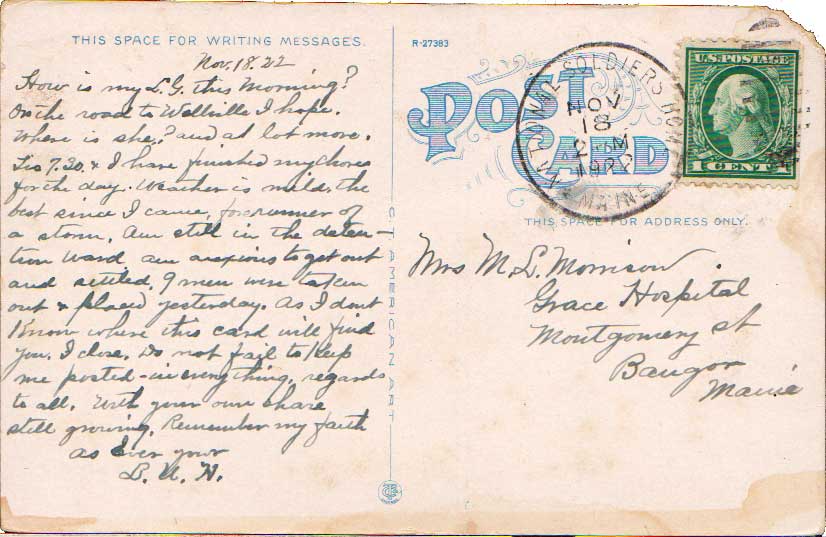 THIS SPACE FOR WRITING MESSAGES.
Nov. 18. 22
How is my L.G. this Morning?
On the road to Wellville I hope.
Where is she? and a lot more.
Tis 7.30. & I have finished my chores
for the day. Weather is mild, the
best since I came, forerunner of
a storm. Am still in the deten-
tion ward am anxious to get out
and settled. 9 men were taken
out & placed yesterday. As I dont
Know where this card will find
you. I close. Do not fail to Keep
me posted - in everything. regards
to all. With your own share
still growing. Remember my faith
as Ever your
L. U. H.
C. T. AMERICAN ART
R-27383
POST CARD
NATIONAL SOLDIERS HOME
NOV
18
1922
MAINE
U.S. POSTAGE
1 CENT 1
THIS SPACE FOR ADDRESS ONLY.
Mrs M. L. Morrison.
Grace Hospital
Montgomery st
Bangor
Maine